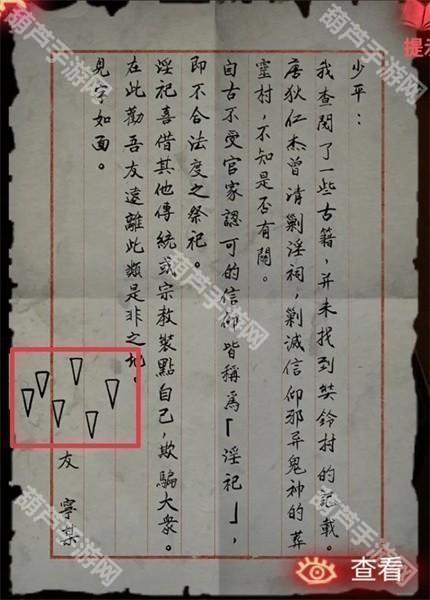 提示
少平：
我查閱了一些古籍，并未找到奘鈴村的記載。
唐狄仁杰曾清剿淫祠，剿滅信仰邪异鬼神的葬
靈村，不知是否有關。
自古不受官家認可的信仰皆稱爲「淫祀」，
即不合法度之祭祀。
淫祀喜借其他傳統或宗教裝點自己，欺騙大衆。
在此勸吾友遠離此類是非之地。
見字如面。
友 寧某
查看
葫芦手游网
葫芦手游网
葫芦手游网
葫芦手游网
葫芦手游网